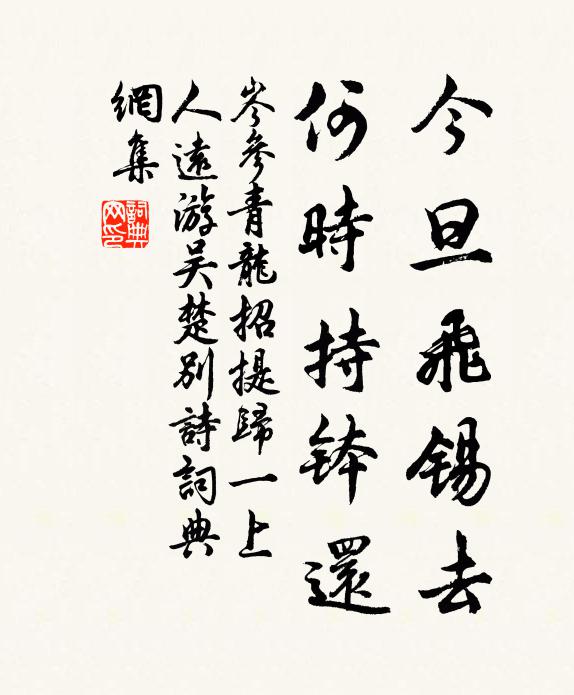 今旦飛錫去
何時持缽還
岑參青龍招提歸一上
人遠游吳楚別詩詞典
網集
詞典網印